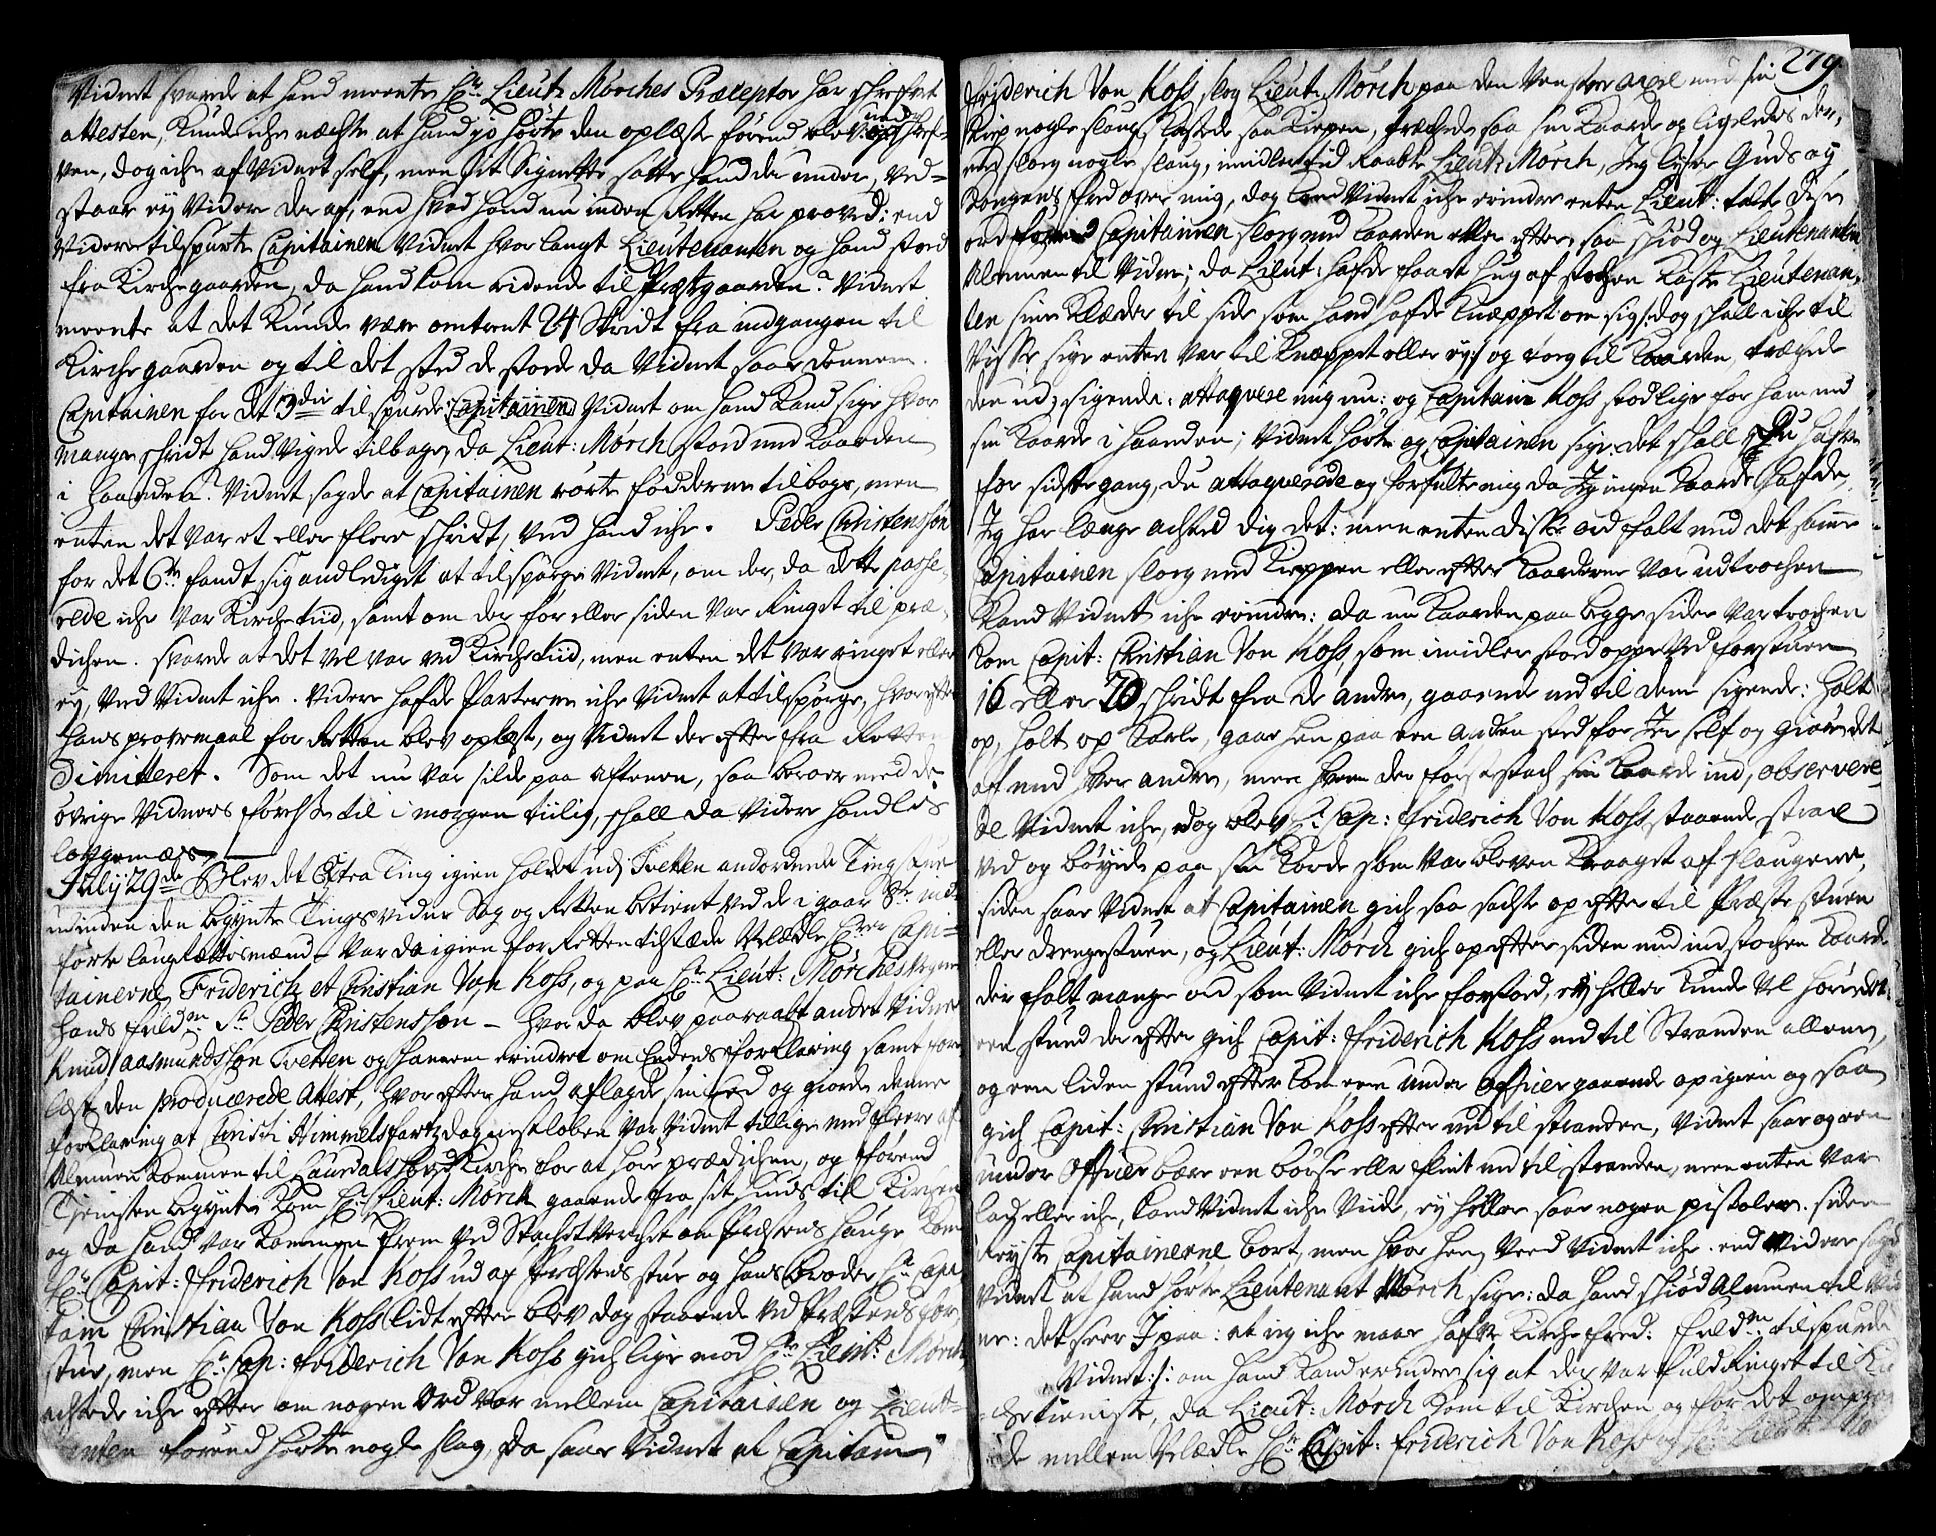 Vidnet svarede at hand meente Hr. Lieut: Mørches Præceptor har skrefvet
attesten, kunde iche nægte at hand jo hørte den oplæste førend blev ned skref-
ven, dog iche af Vidnet self, men sit Signette satte hand der under, ved-
staar ey videre der af, end hvad hand nu inden Retten har proved; end
videre tilspurte Capitainen Vidnet hvor langt Lieutenanten og hand stod
fra Kirchegaarden, da hand kom ridende til Præstgaarden? Vidnet
meente at det kunde være omtrent 24 Skridt fra indgangen til
Kirchegaarden og til det sted de stode da Vidnet saae dennem.
Capitainen for det 3die tilspurde Capitainen Vidnet om hand kand sige hvor
mange skridt hand vigede tilbage, da Lieut: Mørch stod med kaarden
i haanden? Vidnet sagde at Capitainen rørte fødderne tilbage, men
enten det var et eller flere skridt, ved hand iche. Peder Christenssøn
for det 6te fandt sig andlediget at tilspørge Vidnet, om der, da dette passe-
rede iche var Kirchetiid, samt om der før eller siden var Ringet til præ-
dichen. svarde at det vel var ved Kirchetiid, men enten det var ringet eller
ey, ved Vidnet iche. videre hafde Parterne iche Vidnet at tilspørge, hvorefter
hans provemaal for Retten blev oplæst, og Vidnet der efter fra Retten
Dimitteret. Som det nu var silde paa aftenen, saa beroer med de
øvrige Vidners førelse til i morgen tiilig, skall da videre handles
lovgemæs.
July 29de Blev det Extra Ting igien holdet udj Tvetten andordende Tingstue
udinden den begynte Tingsvidne Sag og Retten betient ved de i gaar Dto ind-
førte laugrettesmænd — var da igien for Retten tilstæde Velædle Hrer Capi-
tainerne Friderich et Christian Von Koss, og paa Hr. Lieut: Mørches vegne
hans fuldm. Sr. Peder Christenssøn — hvor da blev paaraabt andet Vidne
Knud Aasmundssøn Tvetten og hannem erindret om Eedens forklaring samt fore
læst den producerede Attest, hvorefter hand aflagde sin eed og giorde denne
forklaring at Christi Himmelfartzdag nestleden var Vidnet tillige med fleere af
Almuen kommen til Laurdals hovedkirche for at høre prædichen, og førend
Tienisten begynte kom Hr. Lieut: Mørch gaaende fra sit huus til Kirchen
og da hand var kommen frem ved Stachetverchet om Præstens hauge kom
Hr. Capit: Friderich Von Koss ud af Præstens stue og hans broder Hr. Capi-
tain Christian Von Koss lidt efter blev dog staaende ved Præstens for-
stue, men Hr. Cap: Friderich Von Koss gich lige mod Hr. Lieut: Mørch
achtede iche efter om nogen Ord var mellem Capitainen og Lieut-
enten førend hørte nogle slag, da saae Vidnet at Capitain
279
Friderich Von Koss, slog Lieut: Mørch paa den venstre axel med sin
kiep nogle slaug kastede saa kiepen, træchede saa sin kaarde og ligeledes der-
med slog nogle slaug, imidlertid raabte Lieut: Mørch, Jeg lyser Guds og
Kongens fred over mig, dog kand Vidnet iche erindre enten Lieut: talte disse
ord førend Capitainen slog med kaarden eller efter, saa skiød og Lieutenanten
Almuen til vidne; da Lieut: hafde faaet hug af stochen kaste Lieutenan-
ten sine klæder til side som hand hafde knæppet om sig: dog skall iche til
visse sige enten var til knæppet eller ey: og toeg til kaarden, træchede
den ud, sigende: attaquere mig nu; og Capitain Koss stod lige for ham med
sin kaarde i haanden; Vidnet hørte og Capitainen sige: det skall Du hafve
for sidste gang, du attaquerede og forfulte mig da Jeg ingen kaarde hafde,
Jeg har længe achted dig det: men enten disse ord falt med det samme
Capitainen slog med kieppen eller efter kaarderne var udtrochen
kand Vidnet iche erindre: da nu kaarden paa begge sider var trochen
kom Capit: Christian Von Koss, som imidler stod oppe ved forstuen
16 eller 20 skridt fra de andre, gaaende ned til dem sigende: holt
op, holt op karle, gaar hen paa een anden sted for Jer self og giør det
af med hver andre, men hvem der først stach sin kaarde ind, observere-
de Vidnet iche, dog blev Hr. Cap: Friderich Von Koss staaende strax
ved og bøyede paa sin korde som var bleven kraaget af slaugene,
siden saae Vidnet at Capitainen gich saa sachte op efter til Præste stuen
eller drengestuen, og Lieut: Mørch gich op efter siden med indstochen kaarde
der falt mange ord som Vidnet iche forstod, ey heller kunde vel høre det:
een stund der efter gich Capit: Friderich Koss ned til Stranden allene,
og een liden stund efter kom een under officer gaaende op igien og saa
gich Capit: Christian Von Koss efter ned til stranden, Vidnet saae og een
under Officer bære een børse eller flint ned til stranden, men enten var
lad eller iche, kand Vidnet iche viide, ey heller saae nogen pistoler. siden
reyste Capitainerne bort, men hvor hen, veed Vidnet iche. end videre sigd
Vidnet at hand hørte Lieutenant Mørch sige: da hand skiød Almuen til vid-
ne: det seer I paa: at jeg iche maae hafve Kirche fred. Fuldm. tilspurde
Vidnet: om hand kand erindre sig at der var fuldRinget til Kir-
chetieniste, da Lieut: Mørch kom til Kirchen og før det
mellem Velædle Hr. Capit: Friderich Von Koss og Hr. Lieut: